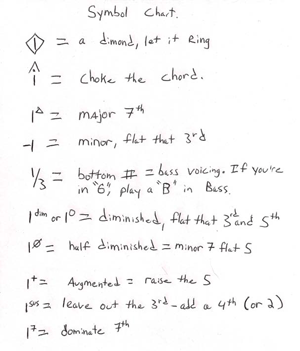 Symbol Chart.
1 = a dimond, let it Ring
^
1 = Choke the chord.
1△ = major 7th
-1 = minor, flat that 3rd
1/3 = bottom # = bass voicing. If you're
in "6", play a "B" in Bass.
1dim or 1o = diminished, flat that 3rd and 5th
1ø = half diminished = minor 7 flat 5
1+ = Augmented = raise the 5
1sus = leave out the 3rd - add a 4th (or 2)
17 = dominate 7th